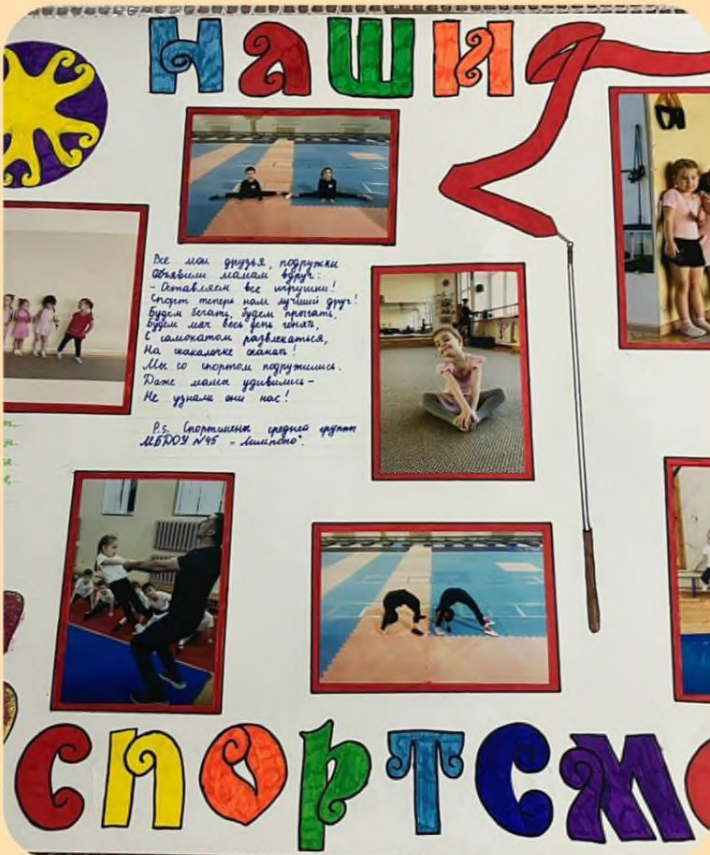 НАШИ
Все мои друзья, подружки
Объявили мамам вдруг:
- Оставляем все игрушки!
Спорт теперь нам лучший друг!
Будем бегать, будем прыгать,
Будем мяч весь день гонять,
С самокатом развлекаться,
На скакалочке скакать!
Мы со спортом подружились.
Даже мамы удивились -
Не узнали они нас!
P.s. Спортсмены средней группы
МБДОУ №45 - "Лимпопо".
СПОРТСМ